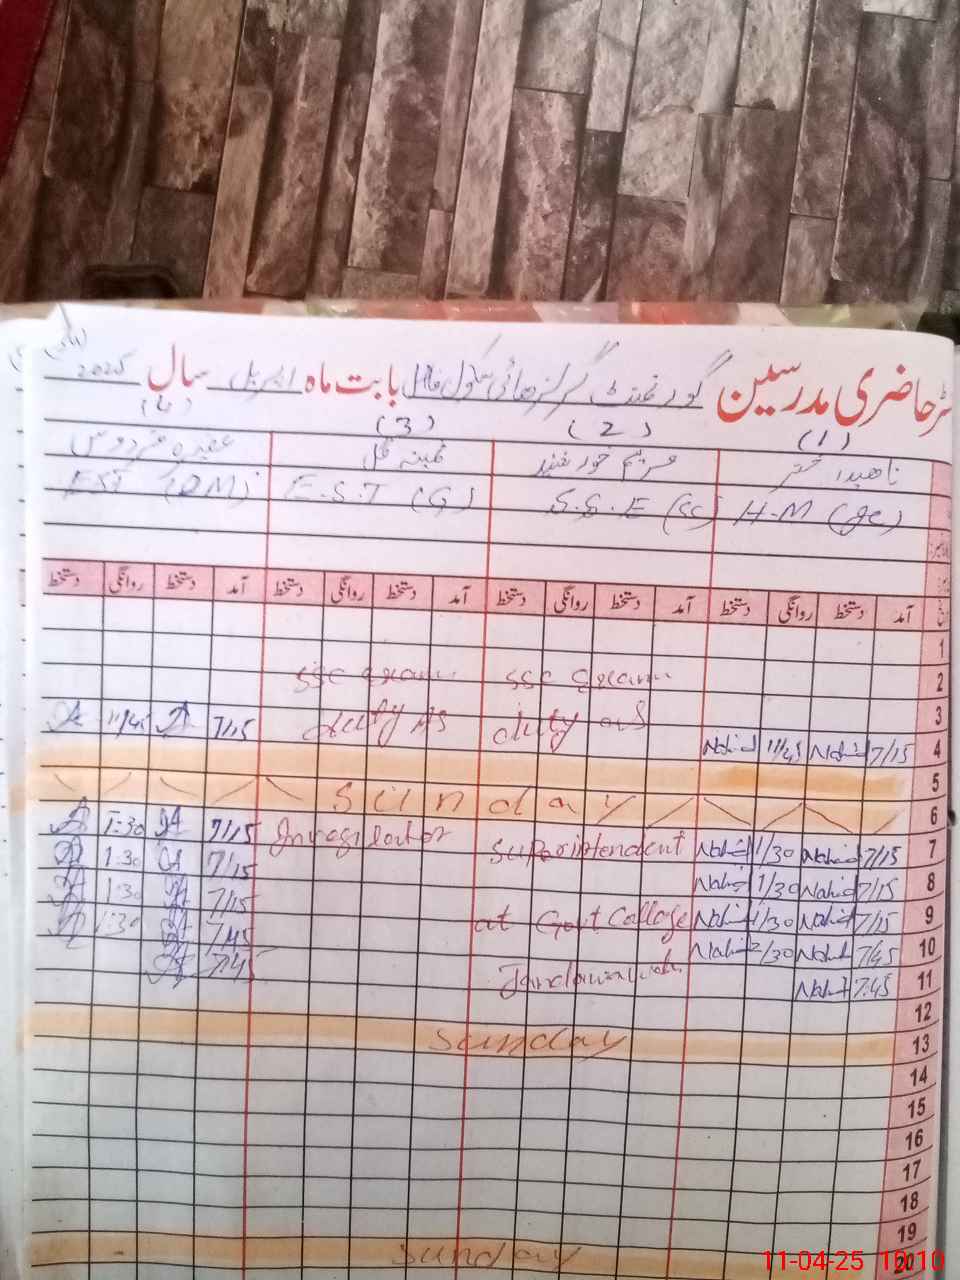 رجسٹر حاضری مدرسین گورنمنٹ گرلز ھائی سکول بابت ماہ اپریل سال 2025
(1) (2) (3) (4)
ناھید اختر مریم خورشید ثمینہ گل
H.M S.S.E (Sc) E.S.T (G) EST (DM)
آمد دستخط روانگی دستخط آمد دستخط روانگی دستخط آمد دستخط روانگی دستخط آمد دستخط روانگی دستخط
1
2 SSC Exam SSC Exam
3 duty as duty as
4 7/15 Nahid 11/45 Nahid 7/15 11/45
5
6 Sunday
7 7/15 Nahid 1/30 Nahid Superintendent Invagilator 7/15 1:30
8 7/15 Nahid 1/30 Nahid 7/15 1:30
9 7/15 Nahid 1/30 Nahid at Govt College 7/15 1:30
10 7/45 Nahid 2/30 Nahid 7/45 1:30
11 7:45 Nahid 7:45
12
13 Sunday
14
15
16
17
18
19
20 Sunday
11-04-25 10:10